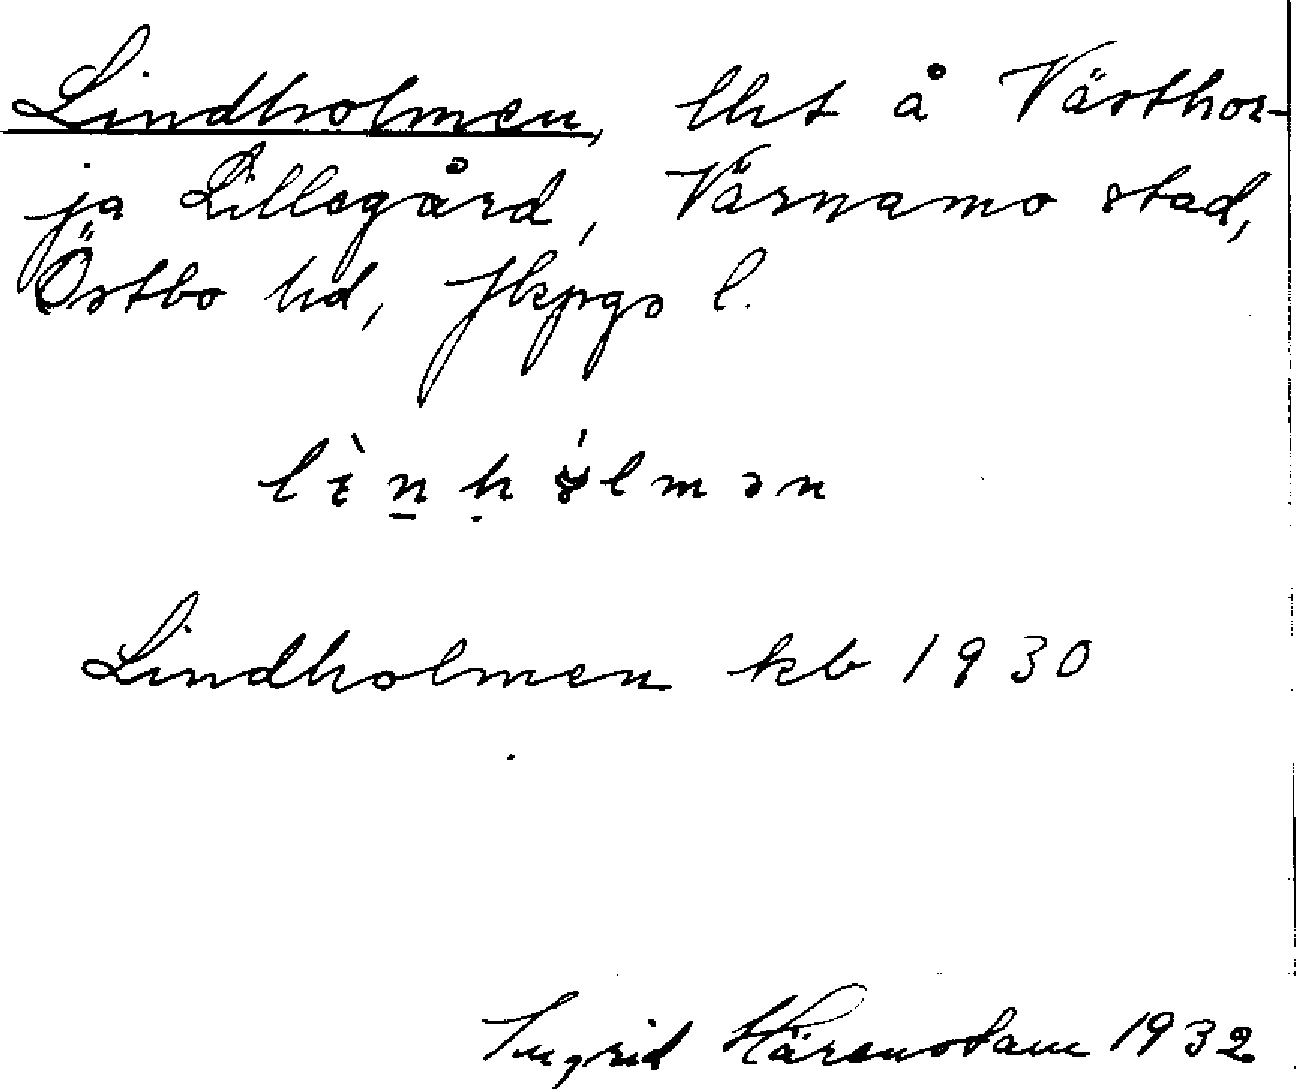 Lindholmen, lht å Västhor-
ja Lillegård, Värnamo stad,
Östbo hd, Jkpgs l.
lìn̲ḥólmən
Lindholmen kb 1930
Ingrid Härenstam 1932